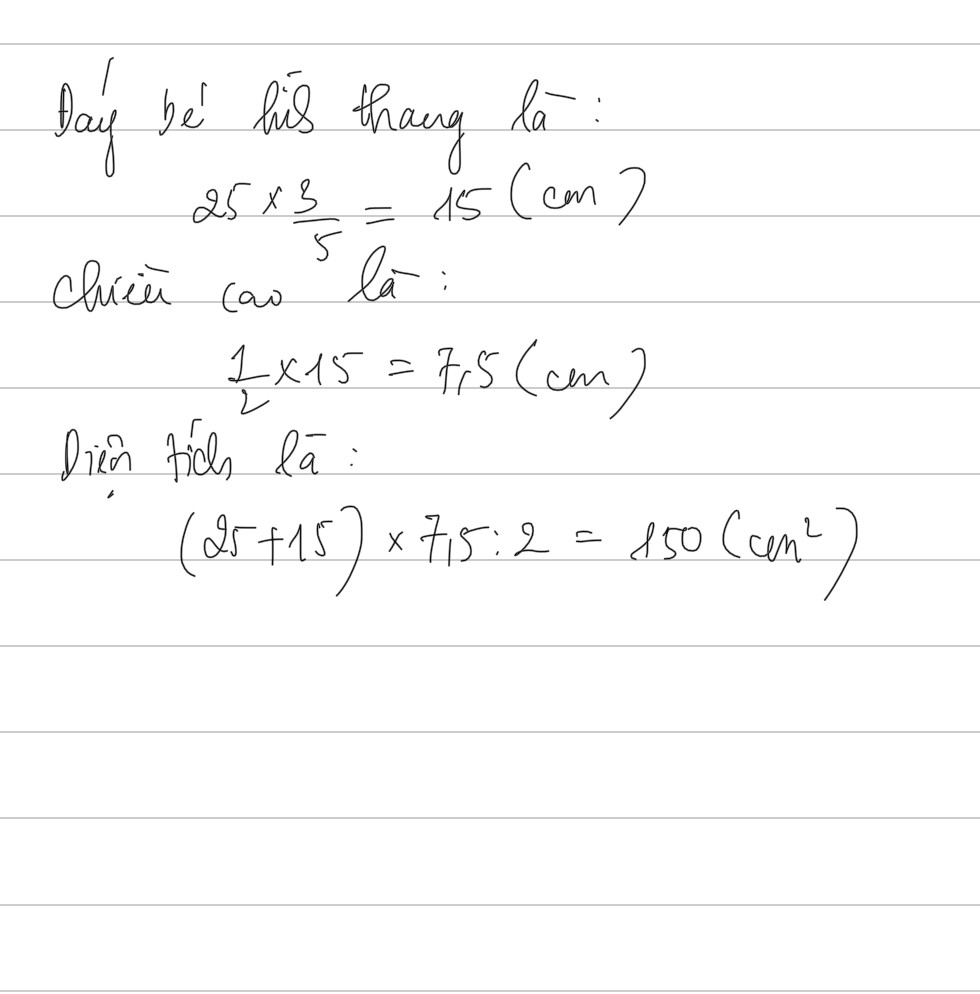 Đáy bé hìh thang là:
25 × 3/5 = 15 (cm)
Chiều cao là:
1/2 × 15 = 7,5 (cm)
Diện tích là:
(25+15) × 7,5 : 2 = 150 (cm²)